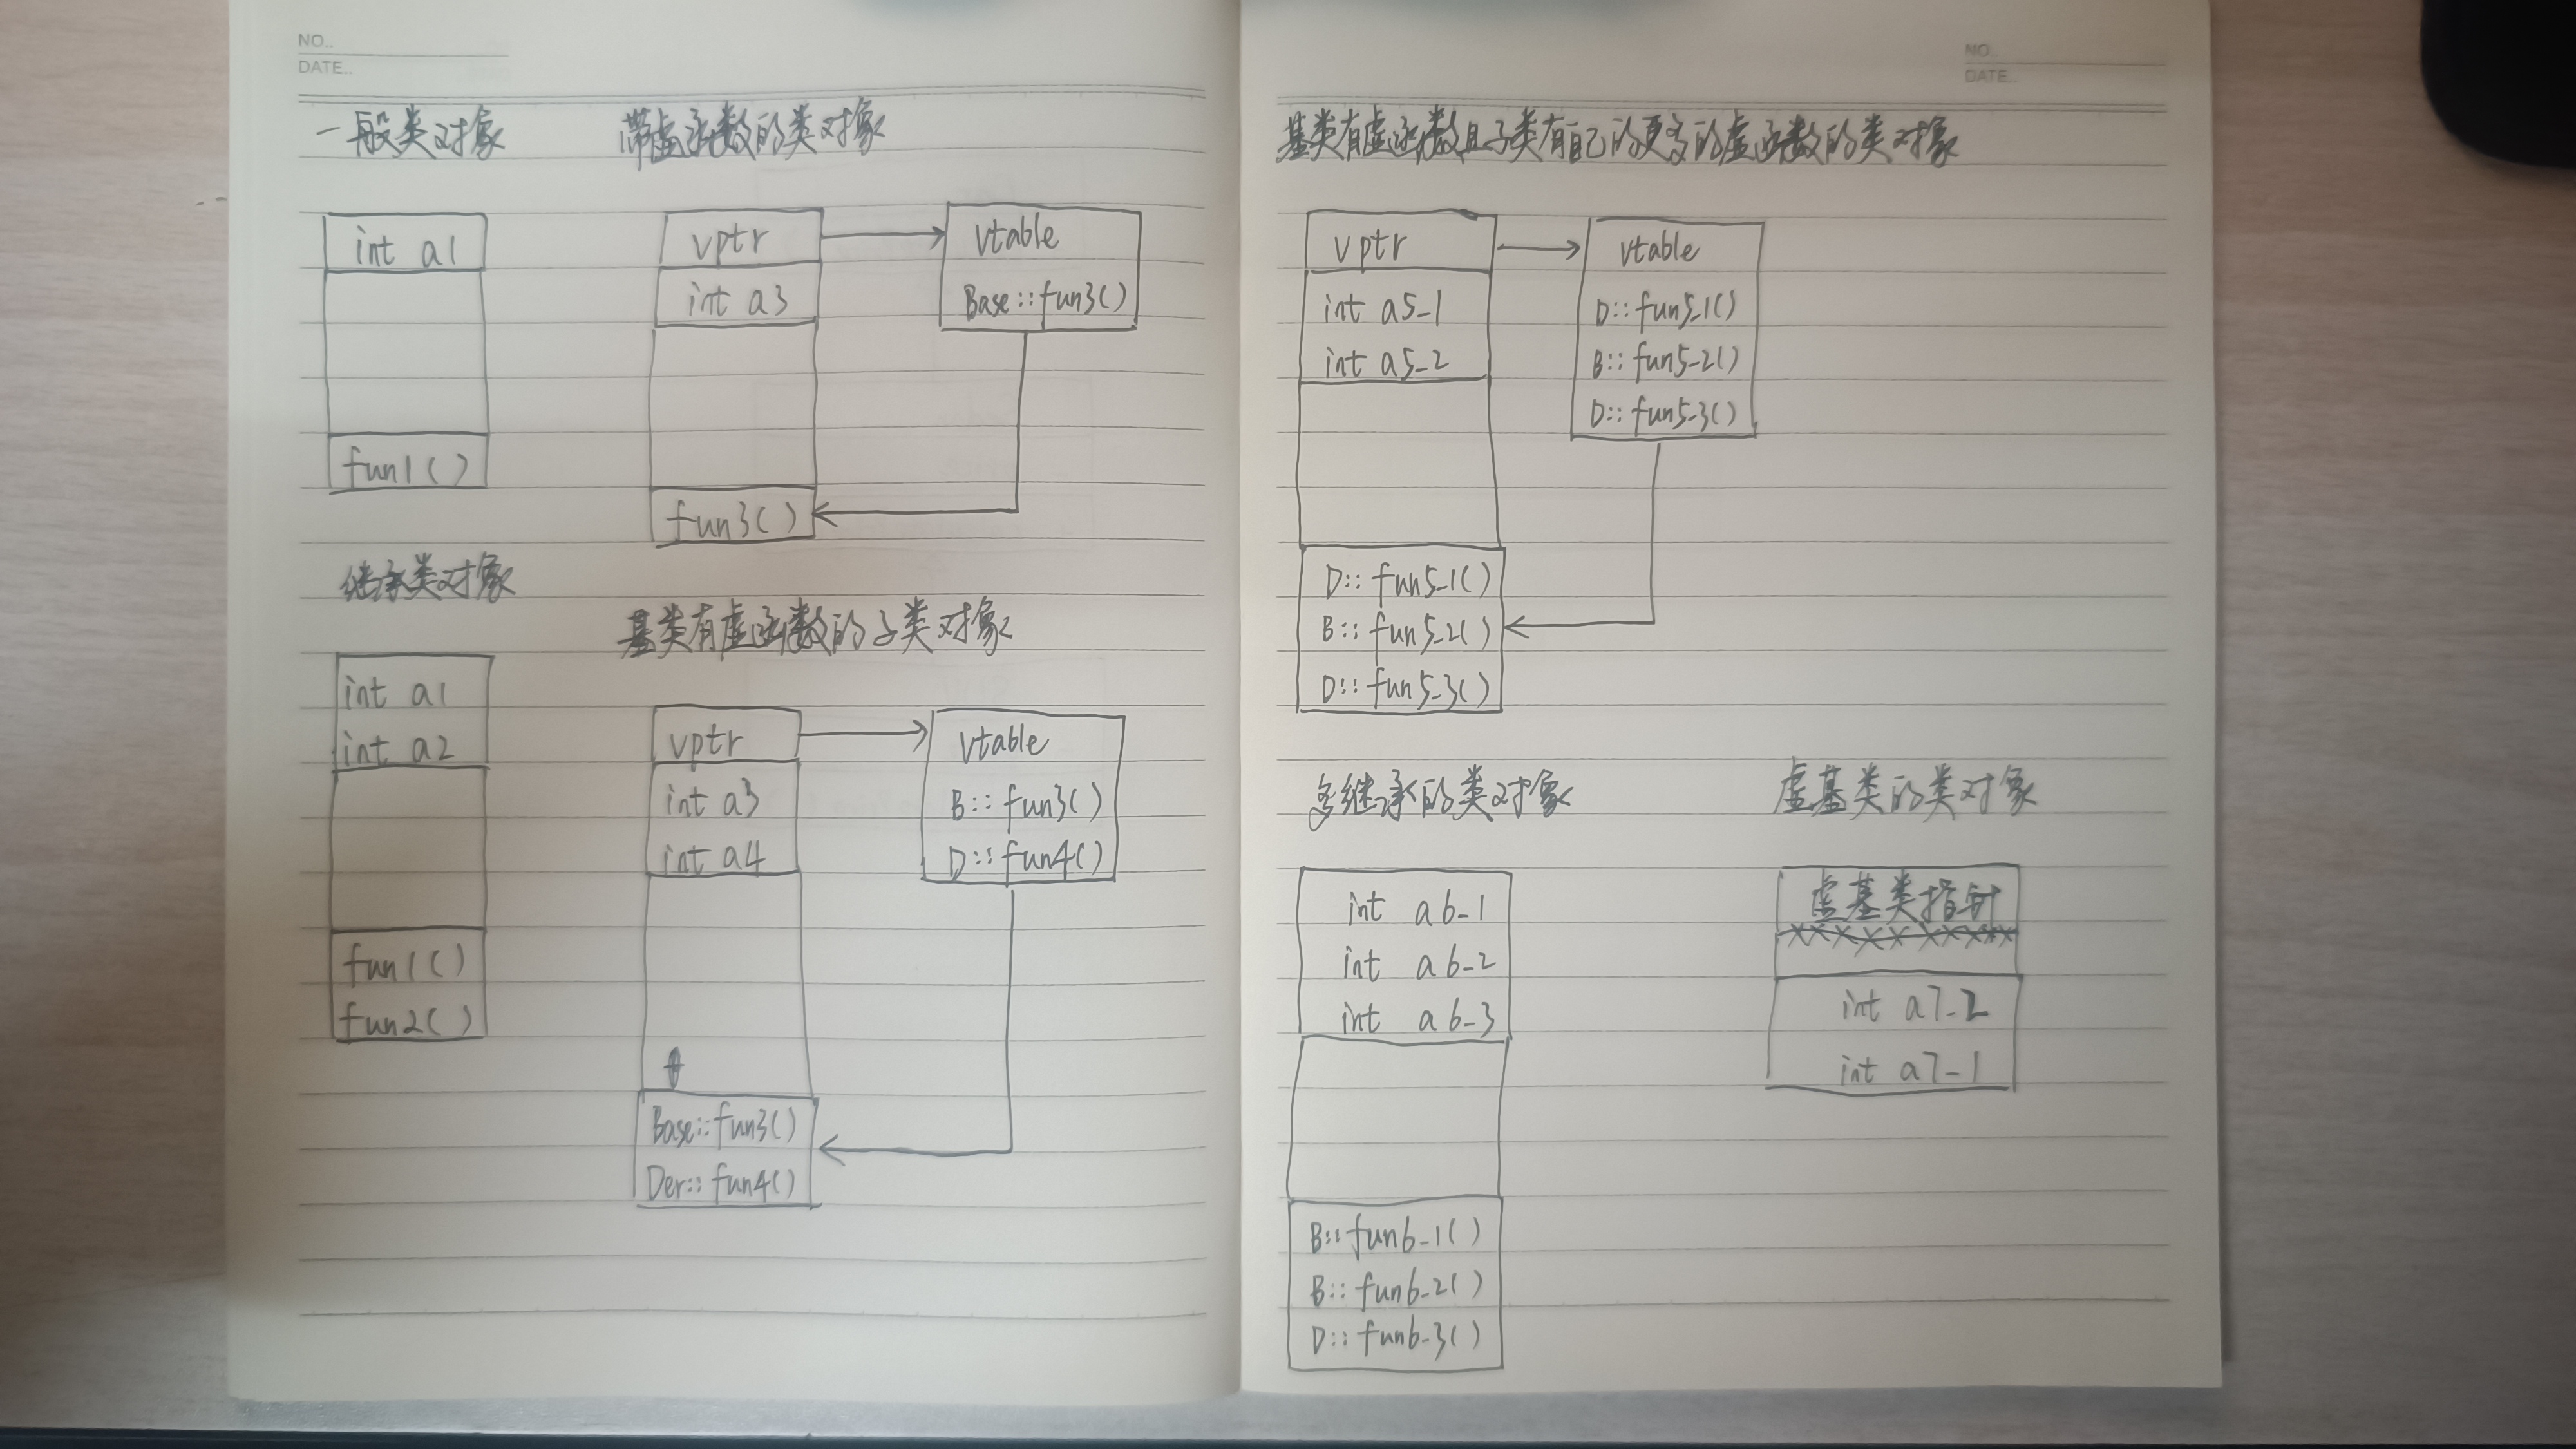 NO..
DATE..
一般类对象
带虚函数的类对象
int a1
fun1()
vptr
int a3
fun3()
vtable
Base::fun3()
继承类对象
int a1
int a2
fun1()
fun2()
基类有虚函数的子类对象
vptr
int a3
int a4
Base::fun3()
Der::fun4()
vtable
B::fun3()
D::fun4()
NO..
DATE..
基类有虚函数且子类有自己的更多的虚函数的类对象
vptr
int a5_1
int a5_2
D::fun5_1()
B::fun5_2()
D::fun5_3()
vtable
D::fun5_1()
B::fun5_2()
D::fun5_3()
多继承的类对象
int a6_1
int a6_2
int a6_3
B::fun6_1()
B::fun6_2()
D::fun6_3()
虚基类的类对象
虚基类指针
int a7_2
int a7_1